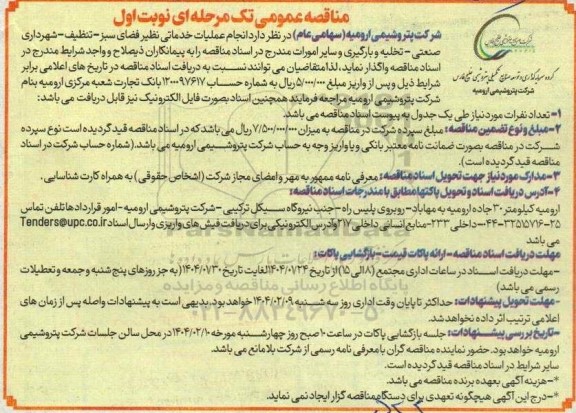 مناقصه عمومی تک مرحله ای نوبت اول
شرکت پتروشیمی ارومیه (سهامی عام) در نظر دارد انجام عملیات خدماتی نظیر فضای سبز - تنظیف - شهرداری
صنعتی - تخلیه و بارگیری و سایر امورات مندرج در اسناد مناقصه را به پیمانکاران ذیصلاح و واجد شرایط مندرج در
اسناد مناقصه واگذار نماید، لذا متقاضیان می توانند نسبت به دریافت اسناد مناقصه در تاریخ های اعلامی برابر
شرایط ذیل و پس از واریز مبلغ ۵/۰۰۰/۰۰۰ ریال به شماره حساب ۱۲۰۰۰۹۷۶۱۷ بانک تجارت شعبه مرکزی ارومیه بنام
شرکت پتروشیمی ارومیه مراجعه فرمایند همچنین اسناد بصورت فایل الکترونیک نیز قابل دریافت می باشد:
شرکت پتروشیمی ارومیه
۱- تعداد نفرات مورد نیاز طی یک جدول به پیوست اسناد مناقصه می باشد.
۲- مبلغ و نوع تضمین مناقصه: مبلغ سپرده شرکت در مناقصه به میزان ۷/۵۰۰/۰۰۰/۰۰۰ ریال می باشد که در اسناد مناقصه قید گردیده است نوع سپرده
شرکت در مناقصه بصورت ضمانت نامه معتبر بانکی و یا واریز وجه به حساب شرکت پتروشیمی ارومیه می باشد. (شماره حساب شرکت در اسناد
مناقصه قید گردیده است).
۳- مدارک مورد نیاز جهت تحویل اسناد مناقصه: معرفی نامه ممهور به مهر و امضای مجاز شرکت (اشخاص حقوقی) به همراه کارت شناسایی.
۴- آدرس دریافت اسناد و تحویل پاکتها مطابق با مندرجات اسناد مناقصه:
ارومیه کیلومتر ۳۰ جاده ارومیه به مهاباد - روبروی پلیس راه - جنب نیروگاه سیکل ترکیبی - شرکت پتروشیمی ارومیه - امور قراردادها تلفن تماس
۲۵-۳۲۵۵۷۱۶-۰۴۴ داخلی ۲۳۳- منابع انسانی داخلی ۲۲۷ و آدرس الکترونیکی برای دریافت فیش های واریزی و ارسال اسناد Tenders@upc.co.ir
می باشد
مهلت دریافت اسناد مناقصه - ارائه پاکات قیمت - بازگشایی پاکات:
- مهلت دریافت اسناد در ساعات اداری مجتمع (۸ الی ۱۵) از تاریخ ۱۴۰۴/۰۷/۲۴ لغایت تاریخ ۱۴۰۴/۰۷/۳۰ (به جز روزهای پنج شنبه و جمعه و تعطیلات
رسمی می باشد)
- مهلت تحویل پیشنهادات: حداکثر تا پایان وقت اداری روز سه شنبه ۱۴۰۴/۰۲/۰۹ خواهد بود. بدیهی است به پیشنهادات واصله پس از زمان های
اعلامی ترتیب اثر داده نخواهد شد.
- تاریخ بررسی پیشنهادات: جلسه بازگشایی پاکات در ساعت ۱۰ صبح روز چهارشنبه مورخه ۱۴۰۴/۰۲/۱۰ در محل سالن جلسات شرکت پتروشیمی
ارومیه خواهد بود. حضور نماینده مناقصه گران با معرفی نامه رسمی از شرکت بلامانع می باشد.
سایر شرایط در اسناد مناقصه قید گردیده است.
*- هزینه آگهی بعهده برنده مناقصه می باشد.
*- درج این آگهی هیچگونه تعهدی برای دستگاه مناقصه گزار ایجاد نمی نماید.